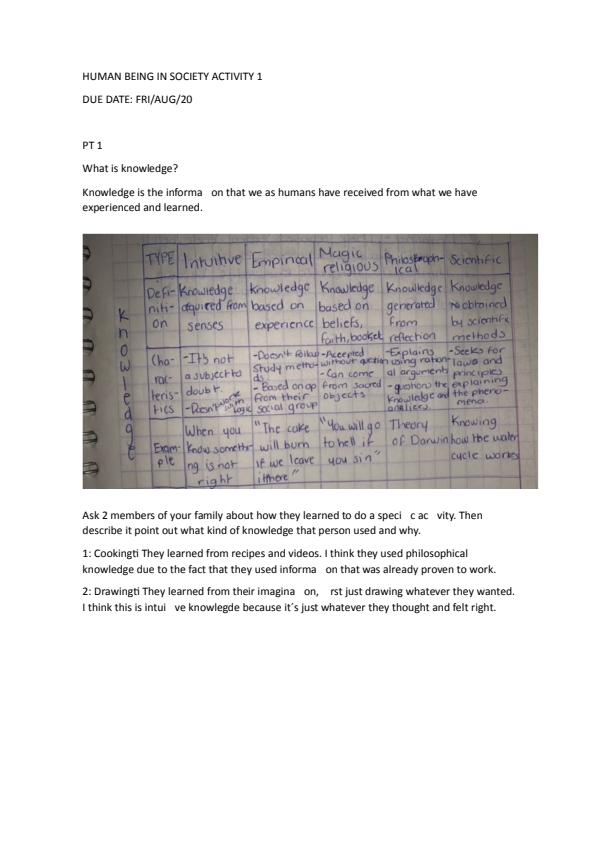 HUMAN BEING IN SOCIETY ACTIVITY 1
DUE DATE: FRI/AUG/20
PT 1
What is knowledge?
Knowledge is the informa on that we as humans have received from what we have
experienced and learned.
TYPE Intuitive Empirical Magic religious Philosoph-ical Scientific
knowledge
Defi-niti-on
Knowledge
aquired from
senses
Knowledge
based on
experience
Knowledge
based on
beliefs,
faith, booket
Knowledge
generated
from
reflection
Knowledge
obtained
by scientific
methods
Cha-
rac-
teris-
tics
-It's not
a subject to
doubt.
-Doesn't work
with logic
-Doesn't follow
study metho-
ds.
-Based on op
from their
social group
-Accepted
without question
-Can come
from sacred
objects
-Explains
using ration-
al arguments
-questions the
knowledge and
analizes
-Seeks for
laws and
principles
explaining
the pheno-
mena.
Exam-
ple
When you
know somethi-
ng is not
right
"The cake
will burn
if we leave
it there"
"You will go
to hell if
you sin"
Theory
of Darwin
Knowing
how the water
cycle works
Ask 2 members of your family about how they learned to do a speci c ac vity. Then
describe it point out what kind of knowledge that person used and why.
1: Cookingti They learned from recipes and videos. I think they used philosophical
knowledge due to the fact that they used informa on that was already proven to work.
2: Drawingti They learned from their imagina on, rst just drawing whatever they wanted.
I think this is intui ve knowlegde because it´s just whatever they thought and felt right.